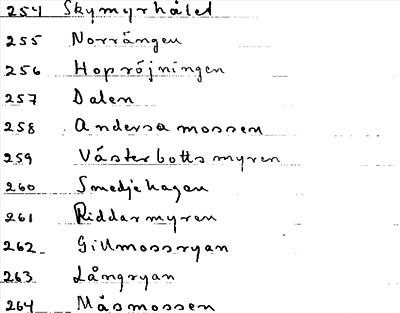 254 Skymyrhålet
255 Norrängen
256 Hopröjningen
257 Dalen
258 Andersamossen
259 Västerbottsmyren
260 Smedjehagen
261 Riddarmyren
262 Gillmossryan
263 Långryan
264 Måsmossen